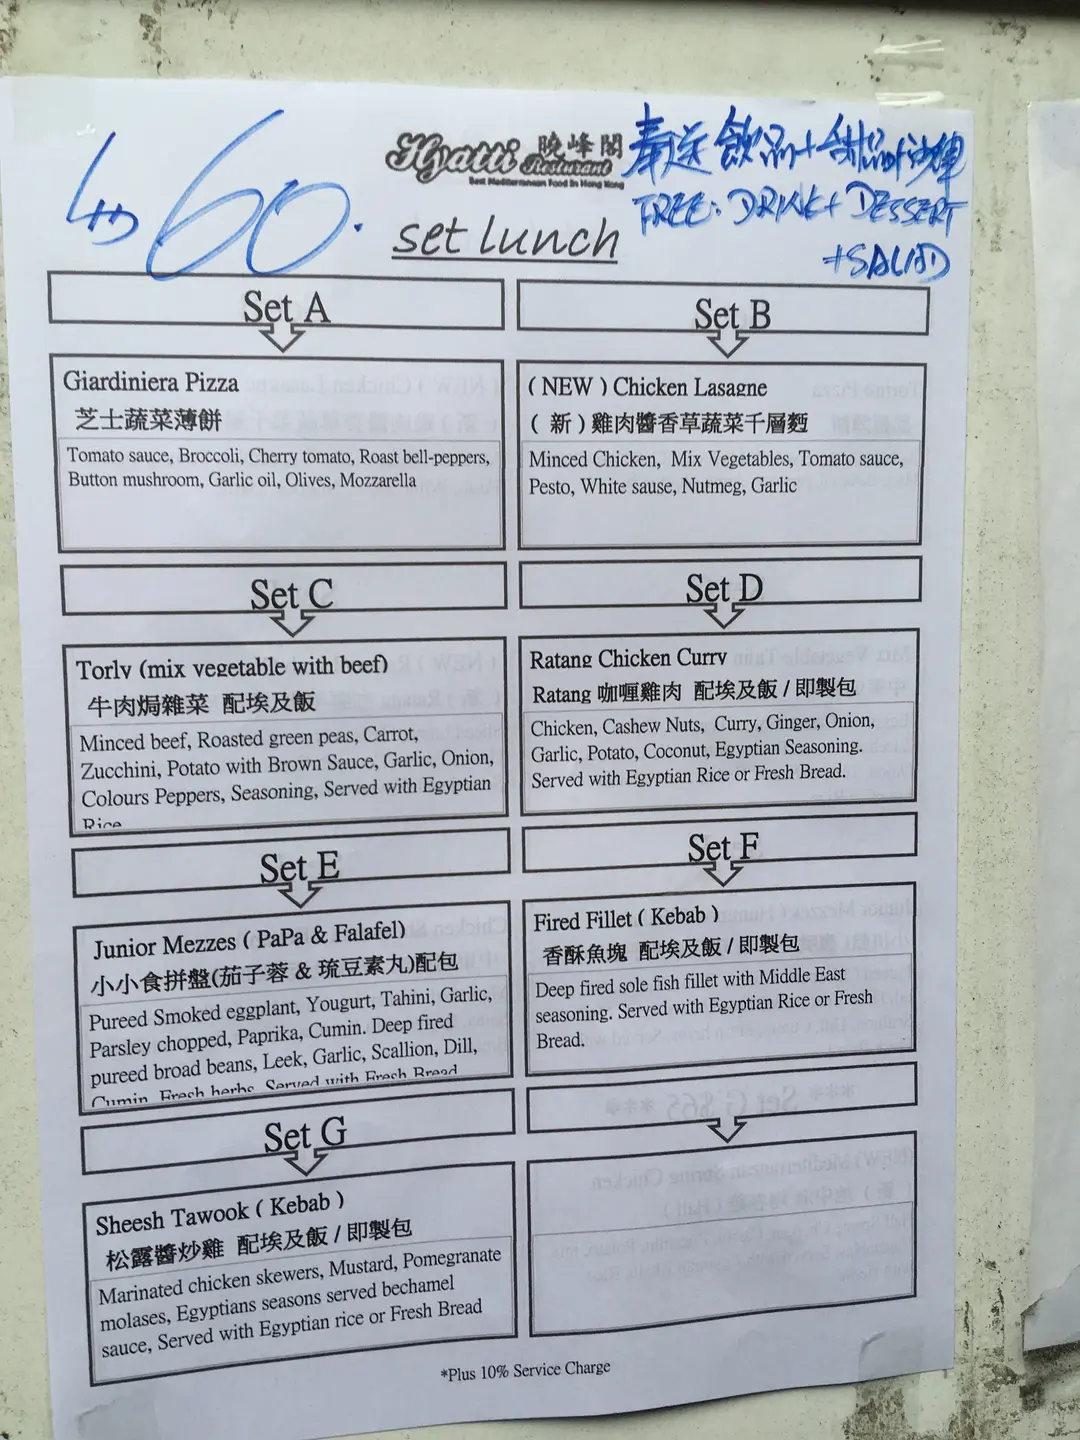 60.
Hyatti 曉峰閣
Restaurant
Best Mediterranean Food In Hong Kong
奉送 飲品+甜品+沙律
FREE: DRINK + DESSERT
+SALAD
set lunch
Set A
Giardiniera Pizza
芝士蔬菜薄餅
Tomato sauce, Broccoli, Cherry tomato, Roast bell-peppers,
Button mushroom, Garlic oil, Olives, Mozzarella
Set B
( NEW ) Chicken Lasagne
( 新 ) 雞肉醬香草蔬菜千層麵
Minced Chicken, Mix Vegetables, Tomato sauce,
Pesto, White sause, Nutmeg, Garlic
Set C
Torly (mix vegetable with beef)
牛肉焗雜菜 配埃及飯
Minced beef, Roasted green peas, Carrot,
Zucchini, Potato with Brown Sauce, Garlic, Onion,
Colours Peppers, Seasoning, Served with Egyptian
Rice
Set D
Ratang Chicken Curry
Ratang 咖喱雞肉 配埃及飯 / 即製包
Chicken, Cashew Nuts, Curry, Ginger, Onion,
Garlic, Potato, Coconut, Egyptian Seasoning.
Served with Egyptian Rice or Fresh Bread.
Set E
Junior Mezzes ( PaPa & Falafel)
小小食拼盤(茄子蓉 & 琉豆素丸)配包
Pureed Smoked eggplant, Yogurt, Tahini, Garlic,
Parsley chopped, Paprika, Cumin. Deep fired
pureed broad beans, Leek, Garlic, Scallion, Dill,
Cumin, Fresh herbs. Served with Fresh Bread
Set F
Fired Fillet ( Kebab )
香酥魚塊 配埃及飯 / 即製包
Deep fired sole fish fillet with Middle East
seasoning. Served with Egyptian Rice or Fresh
Bread.
Set G
Sheesh Tawook ( Kebab )
松露醬炒雞 配埃及飯 / 即製包
Marinated chicken skewers, Mustard, Pomegranate
molases, Egyptians seasons served bechamel
sauce, Served with Egyptian rice or Fresh Bread
*Plus 10% Service Charge